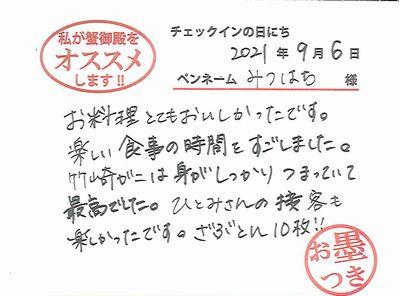 私が蟹御殿を
オススメ
します!!
チェックインの日にち
2021年9月6日
ペンネーム みつはち 様
お料理とてもおいしかったです。
楽しい食事の時間をすごしました。
竹崎がには身がしっかりつまっていて
最高でした。ひとみさんの接客も
楽しかったです。ざぶとん10枚!!
お墨
つき